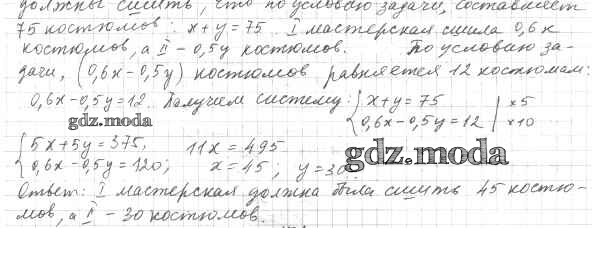 должны сшить, что по условию задачи, составляет
75 костюмов: x + y = 75. I мастерская сшила 0,6x
костюмов, а II – 0,5y костюмов. По условию за-
дачи, (0,6x – 0,5y) костюмов равняется 12 костюмам:
0,6x – 0,5y = 12. Получаем систему: { x + y = 75 | ×5
0,6x – 0,5y = 12 | ×10
gdz.moda
{ 5x + 5y = 375, 11x = 495
0,6x – 0,5y = 120; x = 45; y = 30.
gdz.moda
Ответ: I мастерская должна была сшить 45 костю-
мов, а II – 30 костюмов.